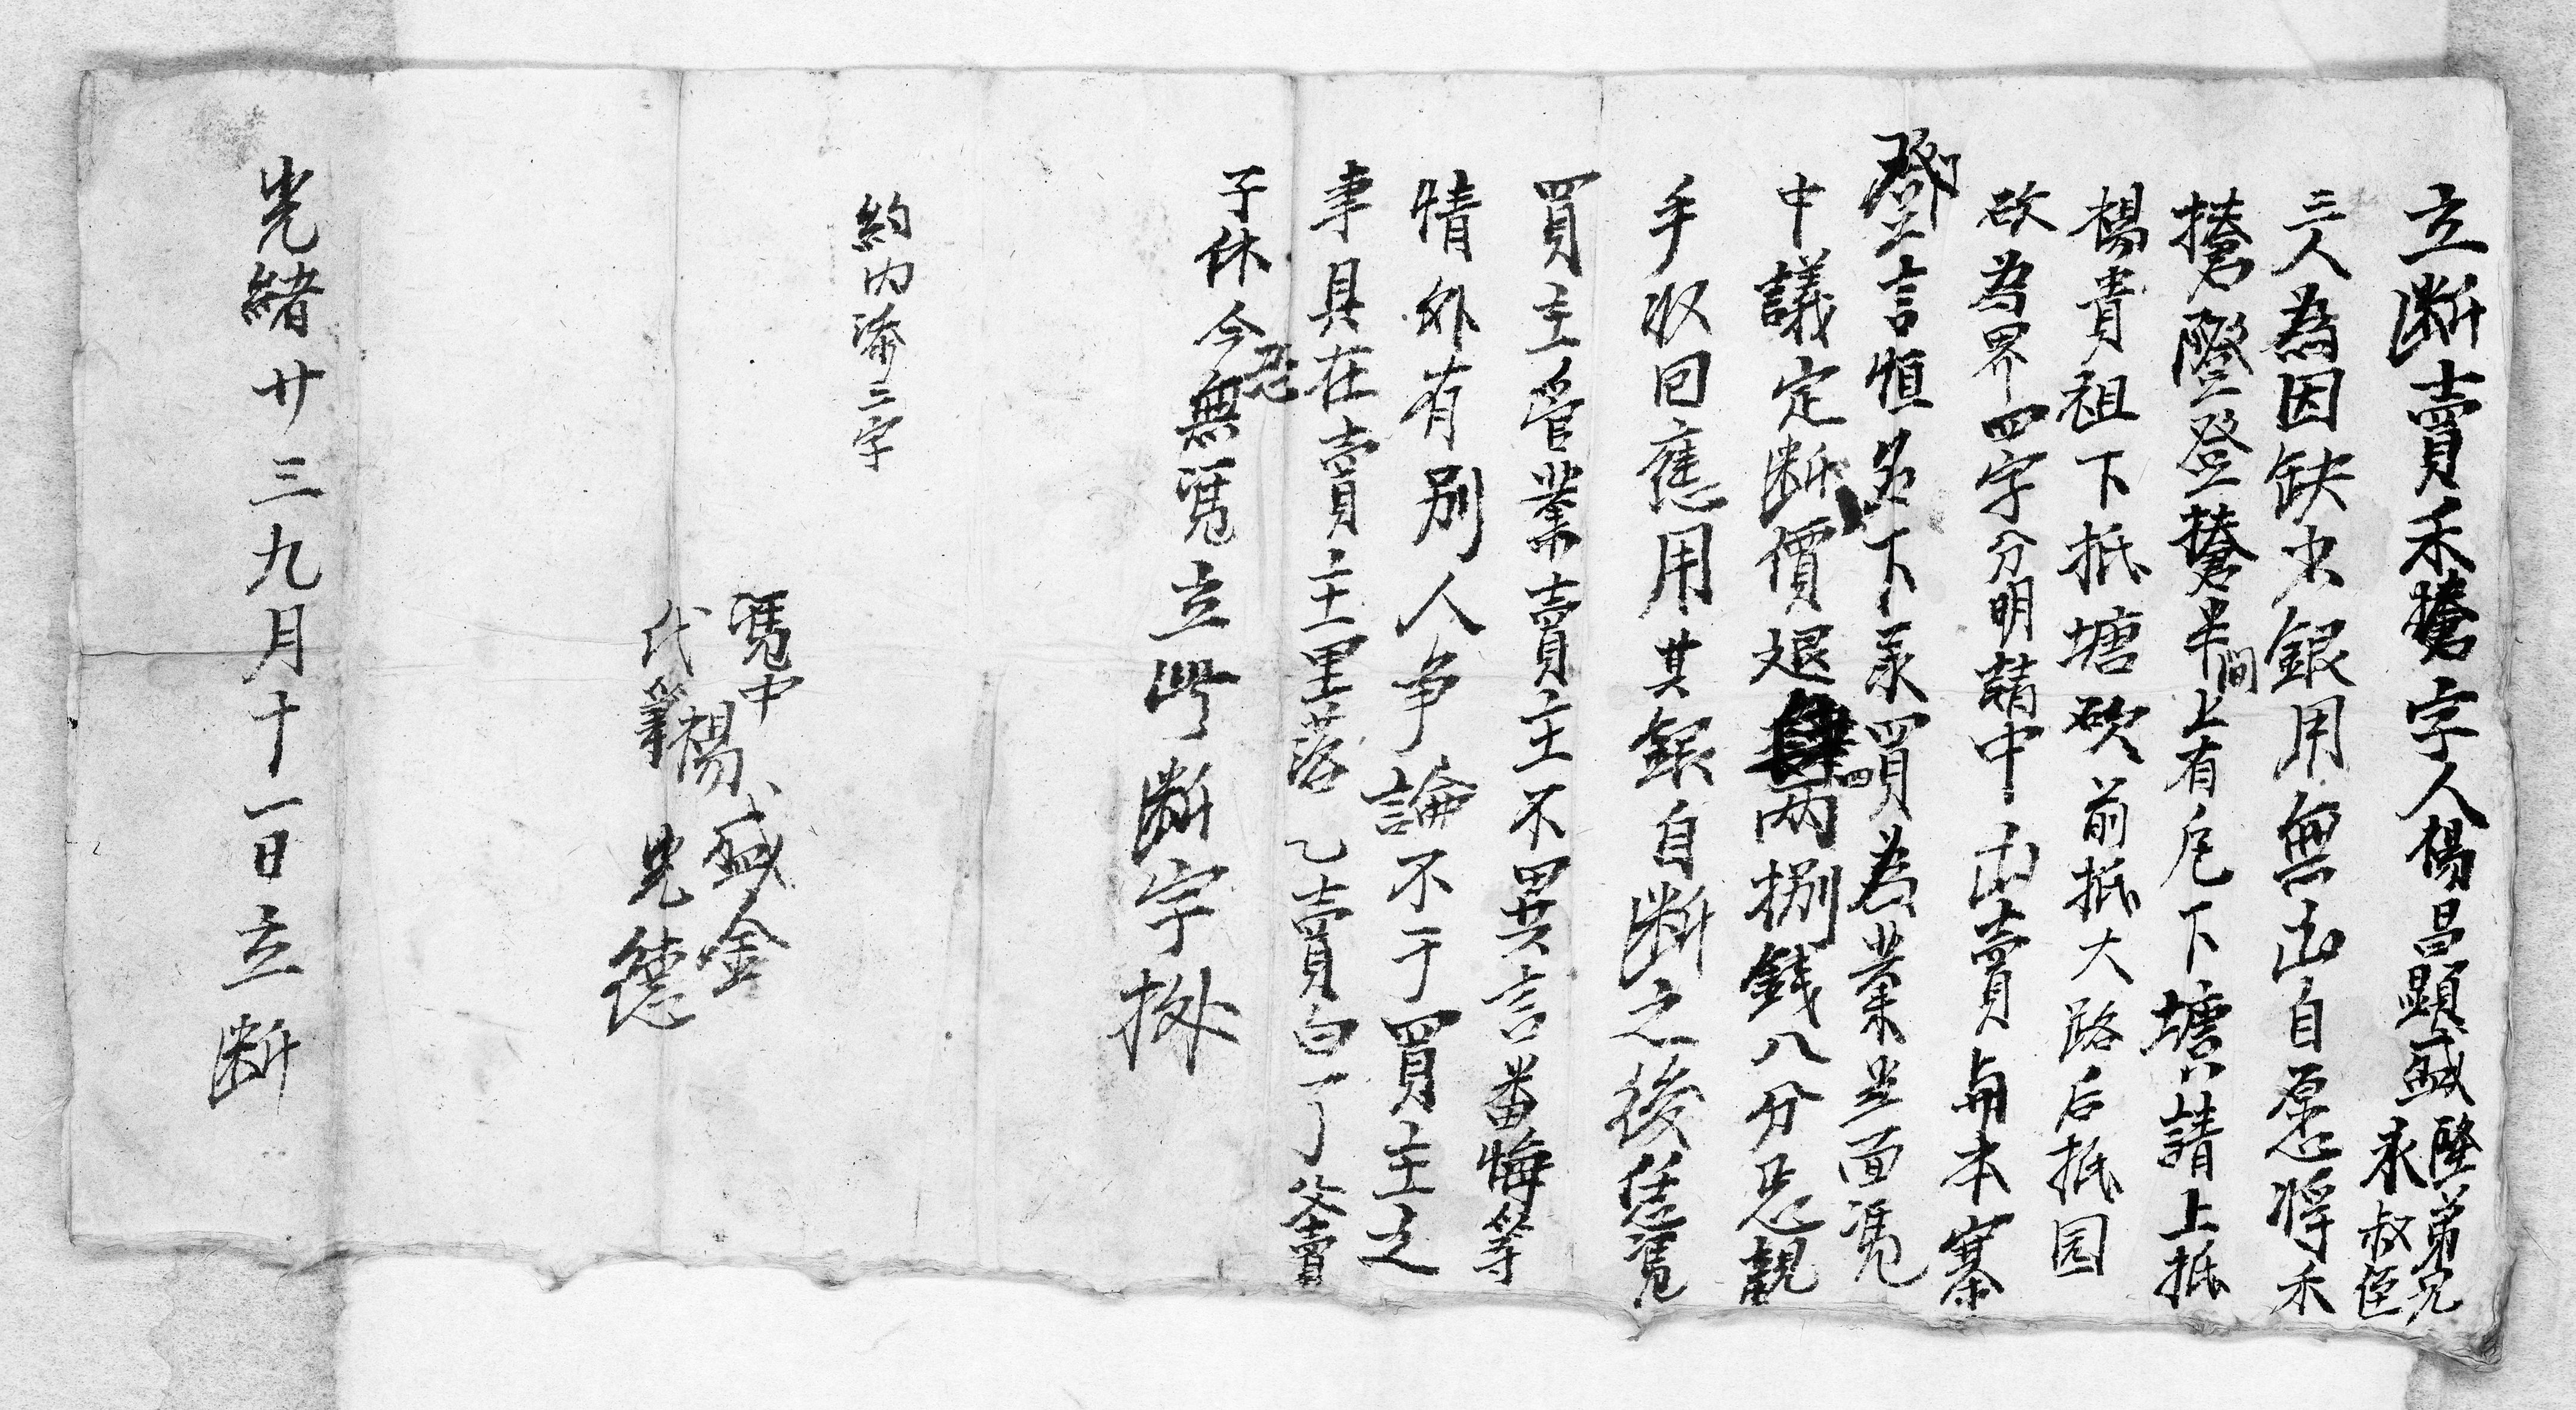 立断賣禾搶字人楊昌顕盛隆弟兄永叔侄
三人為因缺少銀用無出自愿将禾
搶隥登搶半間上有瓦下塘請上抵
楊貴祖下抵塘砍前抵大路后抵园
砍為界四字分明請中出賣与本寨
鄧言恒名下承買為業並面凴
中議定断價退四两捌錢八分足親
手收回應用其銀自断之後恁凴
買主管業賣主不異言番悔等
情外有别人争論不干買主之
事具在賣主里落乙賣白了父賣
子休今恐無凴立此断字拠
約内添三字
凴中楊盛金
代筆楊光德
光緒廿三九月十一日立断